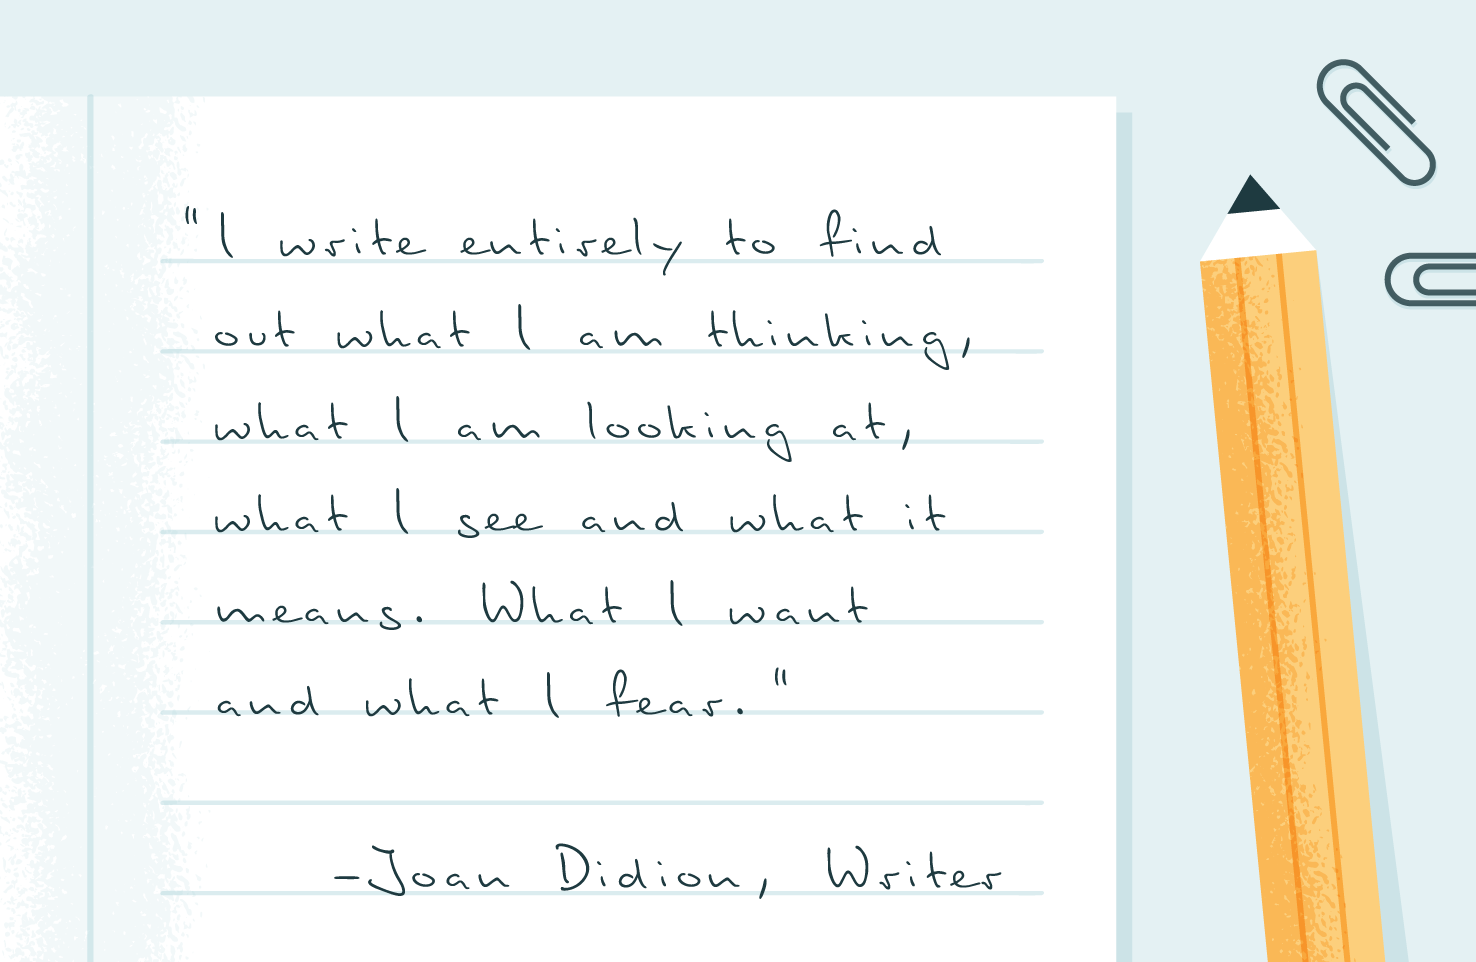 "I write entirely to find
out what I am thinking,
what I am looking at,
what I see and what it
means. What I want
and what I fear."
-Joan Didion, Writer